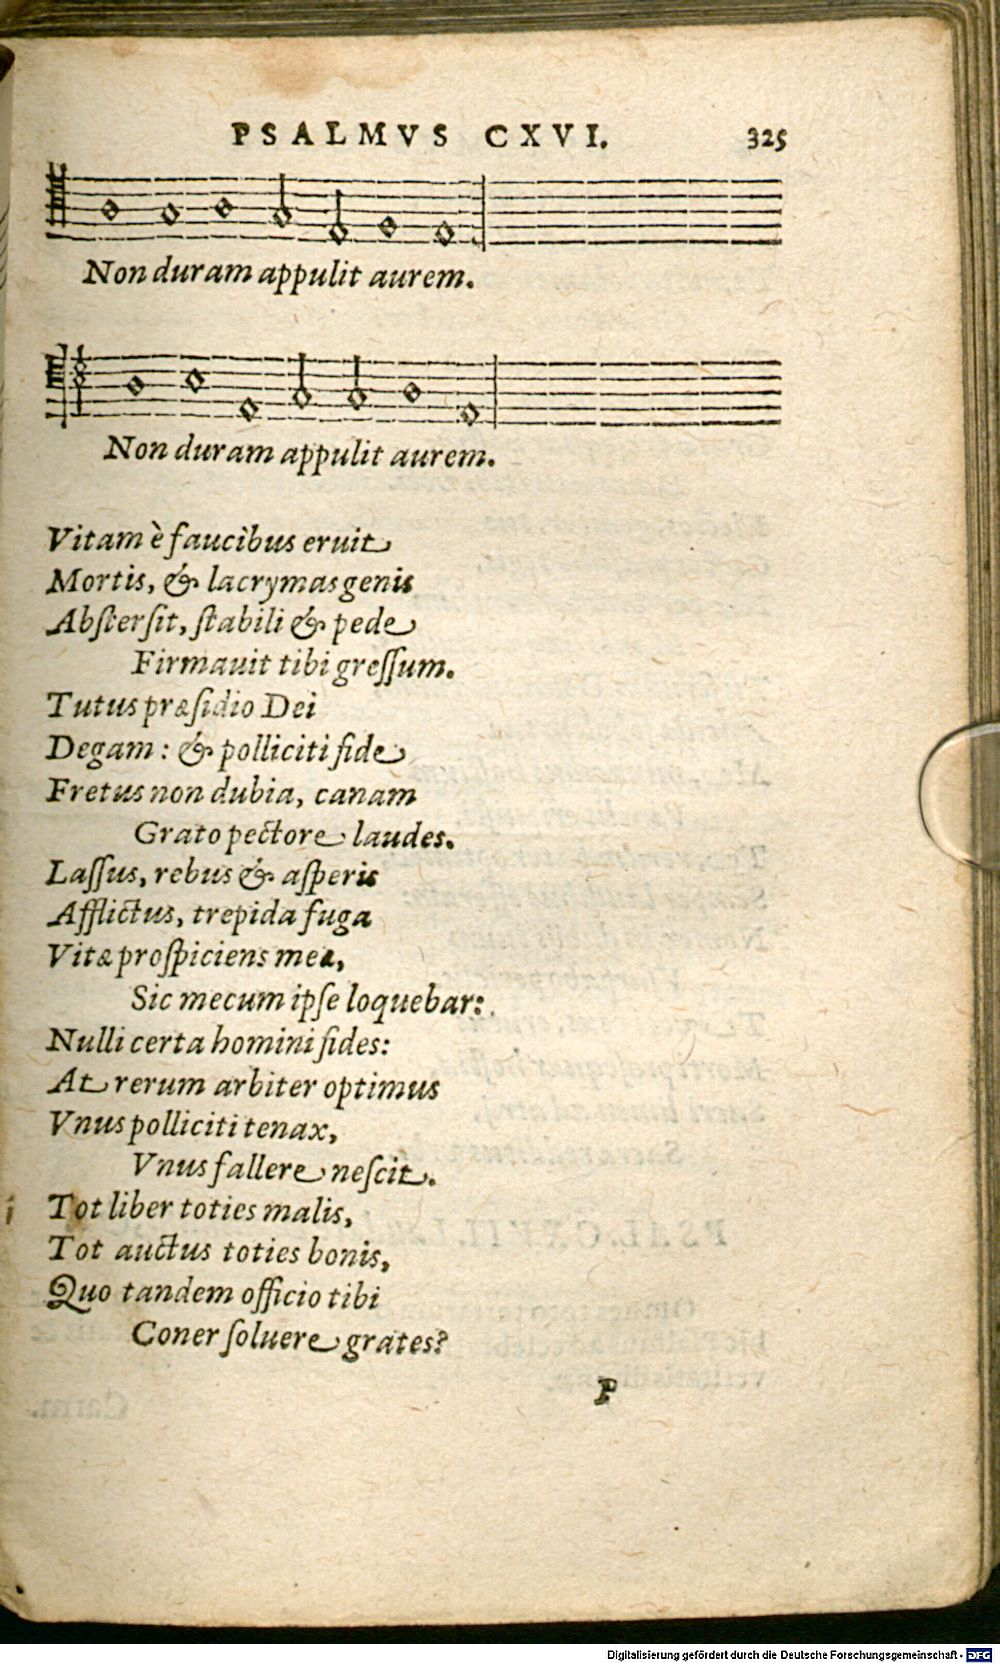 PSALMVS CXVI. 325
Non duram appulit aurem.
Non duram appulit aurem.
Vitam è faucibus eruit
Mortis, & lacrymas genis
Abstersit, stabili & pede
Firmauit tibi gressum.
Tutus præsidio Dei
Degam: & polliciti fide
Fretus non dubia, canam
Grato pectore laudes.
Lassus, rebus & asperis
Afflictus, trepida fuga
Vitæ prospiciens meæ,
Sic mecum ipse loquebar:
Nulli certa homini fides:
At rerum arbiter optimus
Vnus polliciti tenax,
Vnus fallere nescit.
Tot liber toties malis,
Tot auctus toties bonis,
Quo tandem officio tibi
Coner soluere grates?
P
Digitalisierung gefördert durch die Deutsche Forschungsgemeinschaft - DFG